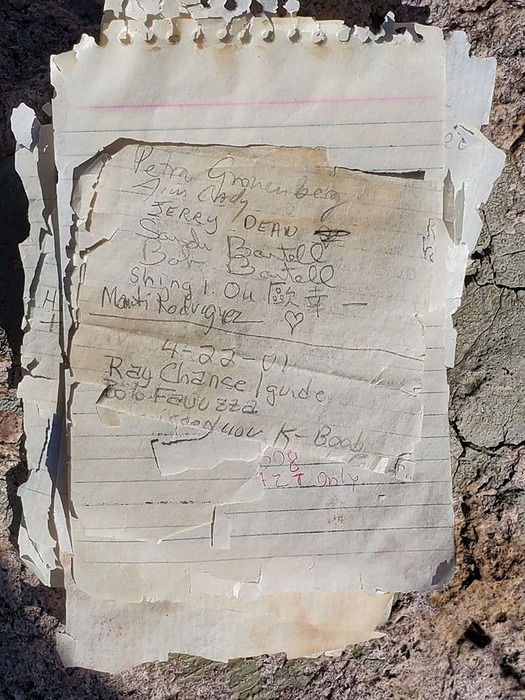 Petra Gronenberg
Jim Cody
JERRY DEAN
Sandi Bartell
Bob Bartell
Shing I. Ou 歐 幸 一
Manti Rodriguez ♡
4-22-01
Ray Chance / guide
Toto Favuzza
you K-Boob
only